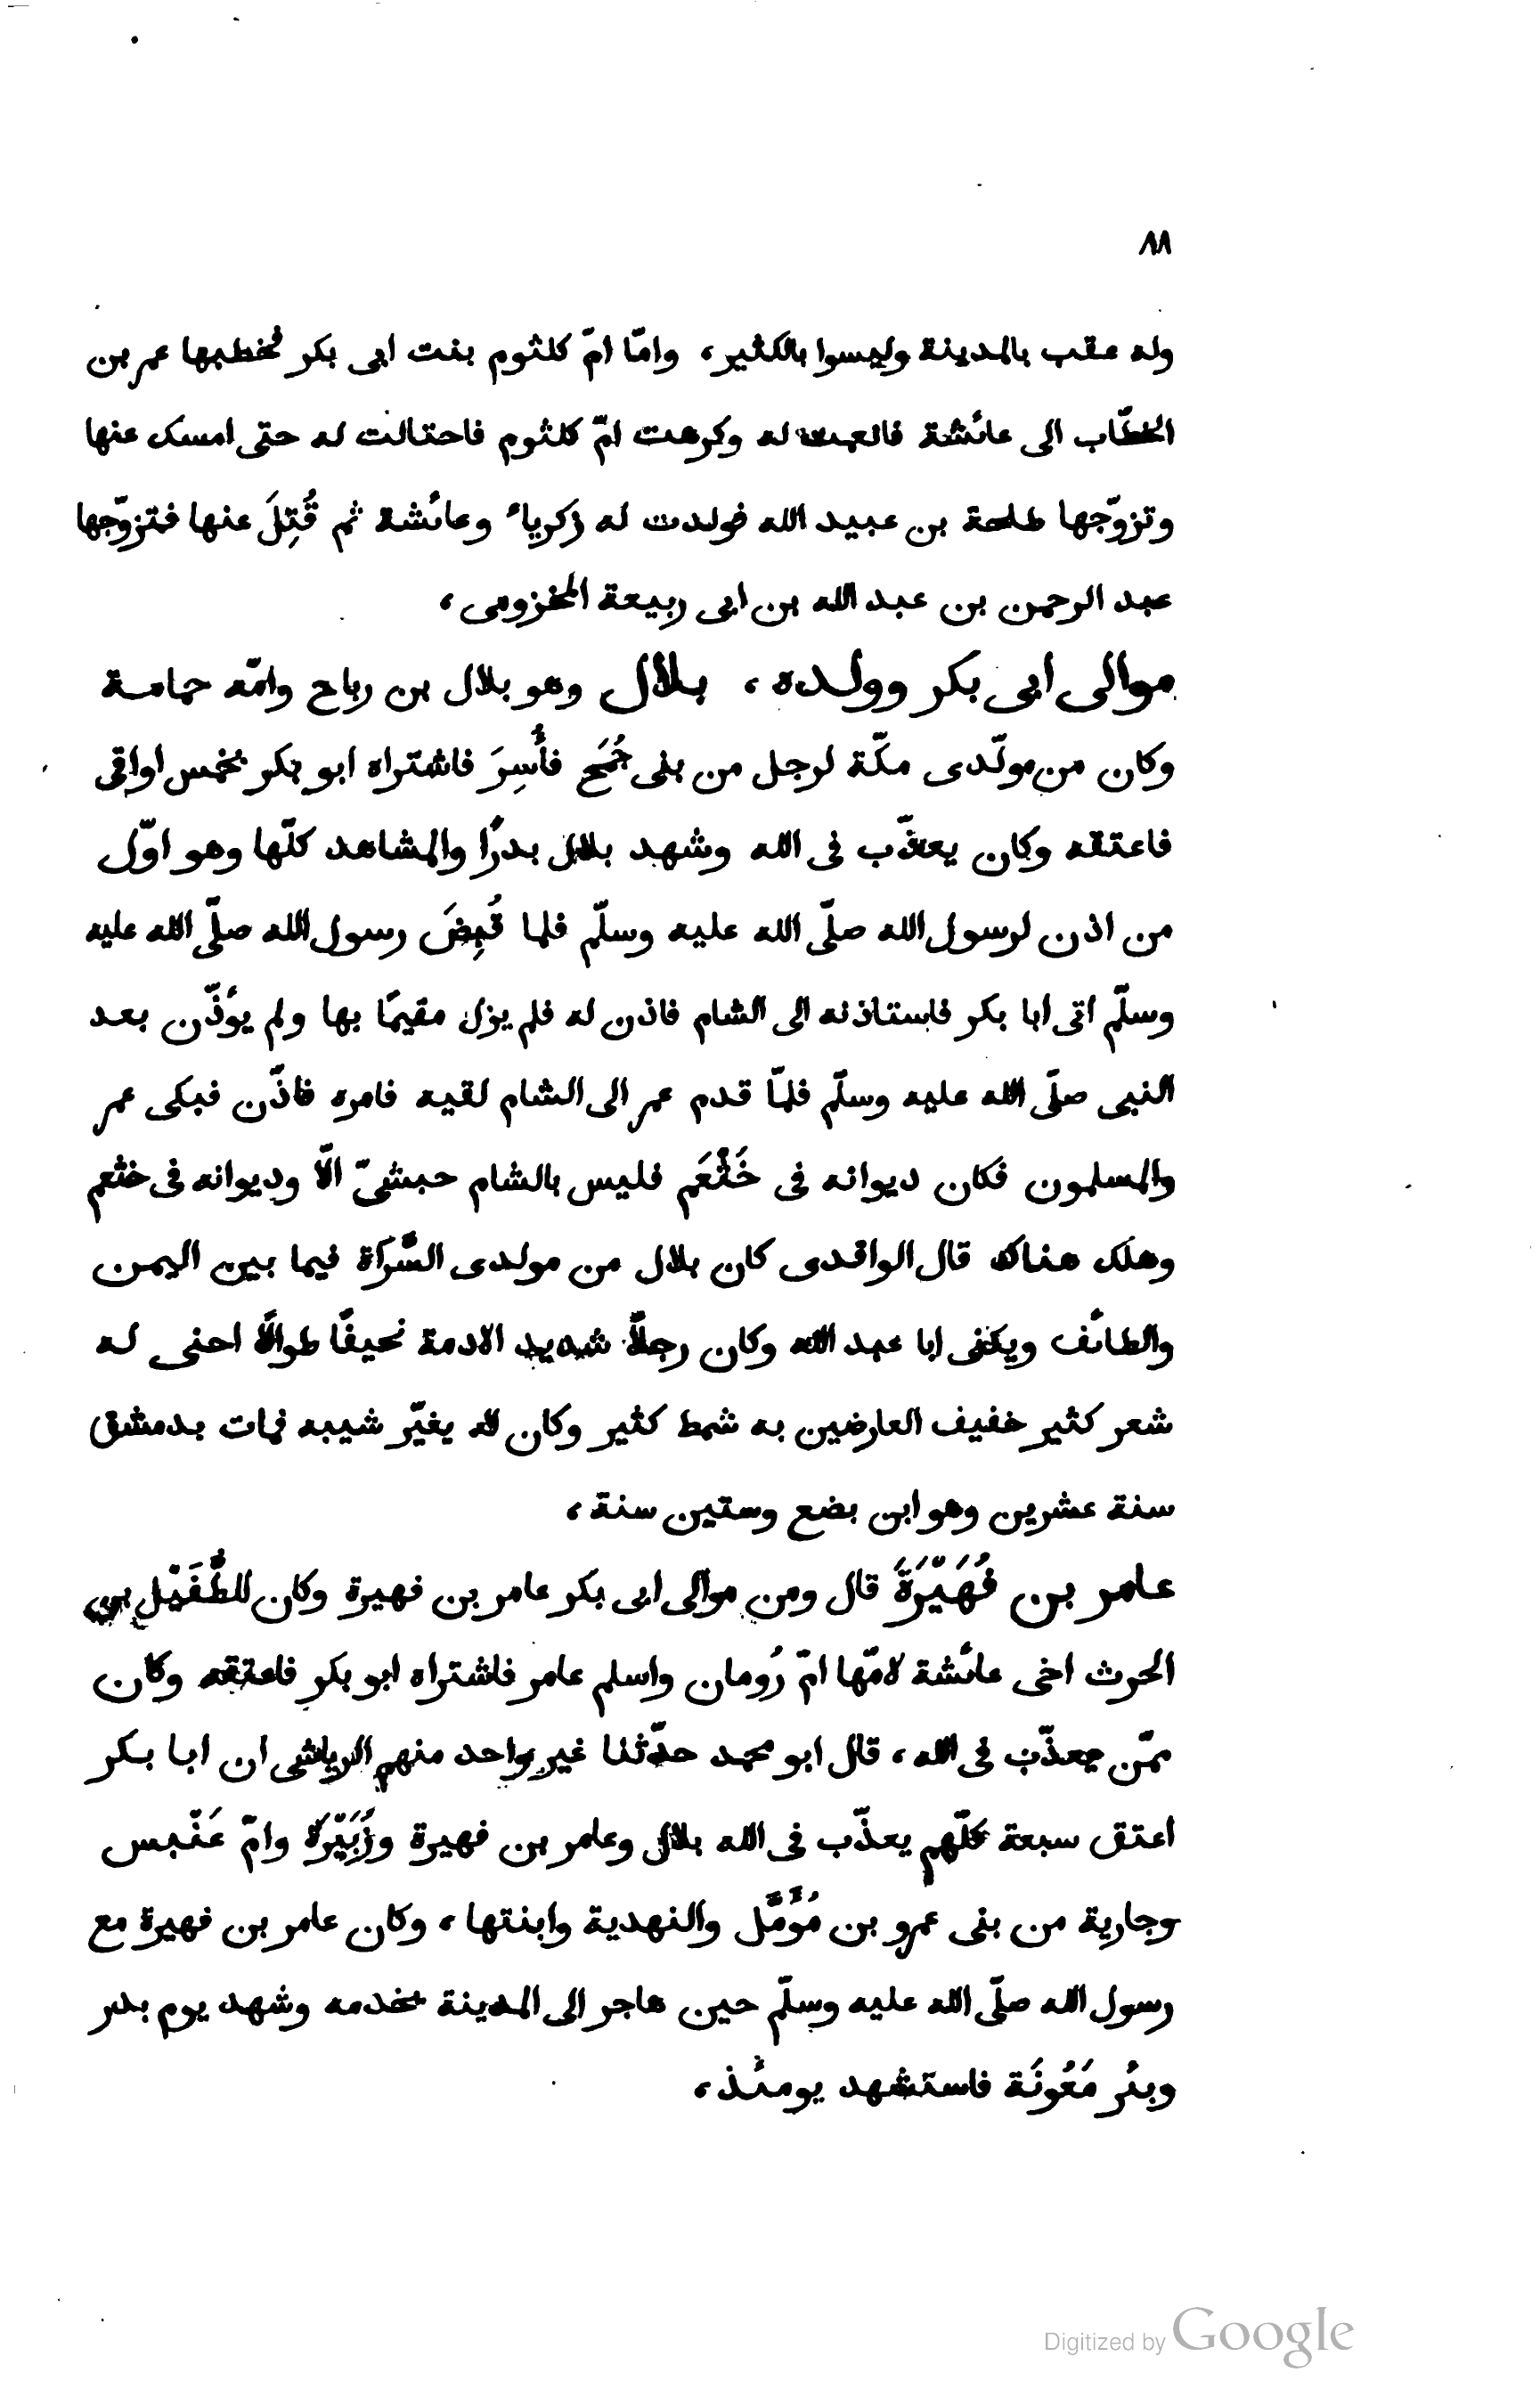 ٨٨
وله عقب بالمدينة وليسوا بالكثير، وامّا امّ كلثوم بنت ابى بكر فخطبها عمر بن
الخطّاب الى عائشة فانعمت له وكرهت امّ كلثوم فاحتالت له حتى امسك عنها
وتزوّجها طلحة بن عبيد الله فولدت له زكرياء وعائشة ثم قُتِلَ عنها فتزوّجها
عبد الرحمن بن عبد الله بن ابى ربيعة المخزومى،
موالى ابى بكر وولده، بلال وهو بلال بن رباح وامّه حمامة
وكان من مولّدى مكّة لرجل من بنى جُمَح فأُسِرَ فاشتراه ابو بكر بخمس اواقى
فاعتقه وكان يعذّب فى الله وشهد بلال بدرًا والمشاهد كلّها وهو اوّل
من اذن لرسول الله صلّى الله عليه وسلّم فلما قُبِضَ رسول الله صلّى الله عليه
وسلّم اتى ابا بكر فاستاذنه الى الشام فاذن له فلم يزل مقيمًا بها ولم يؤذّن بعد
النبى صلّى الله عليه وسلّم فلمّا قدم عمر الى الشام لقيه فامره فاذّن فبكى عمر
والمسلمون فكان ديوانه فى خَثْعَم فليس بالشام حبشىّ الّا وديوانه فى خثعم
وهلك هناك قال الواقدى كان بلال من مولدى السَّراة فيما بين اليمن
والطائف ويكنى ابا عبد الله وكان رجلًا شديد الادمة نحيفًا طوالًا احنى له
شعر كثير خفيف العارضين به شمط كثير وكان لا يغيّر شيبه فمات بدمشق
سنة عشرين وهو ابن بضع وستين سنة،
عامر بن فُهَيْرَةَ قال ومن موالى ابى بكر عامر بن فهيرة وكان للطُّفَيْل بن
الحرث اخى عائشة لامّها امّ رُومان واسلم عامر فاشتراه ابو بكر فاعتقه وكان
ممّن يعذّب فى الله، قال ابو محمد حدّثنا غير واحد منهم الرياشى ان ابا بكر
اعتق سبعة كلّهم يعذّب فى الله بلال وعامر بن فهيرة وزُبَيْرَة وامّ عَنْبس
وجارية من بنى عمرو بن مُؤَمَّل والنهدية وابنتها، وكان عامر بن فهيرة مع
رسول الله صلّى الله عليه وسلّم حين هاجر الى المدينة يخدمه وشهد يوم بدر
وبئر مَعُونَة فاستشهد يومئذ،
Digitized by Google